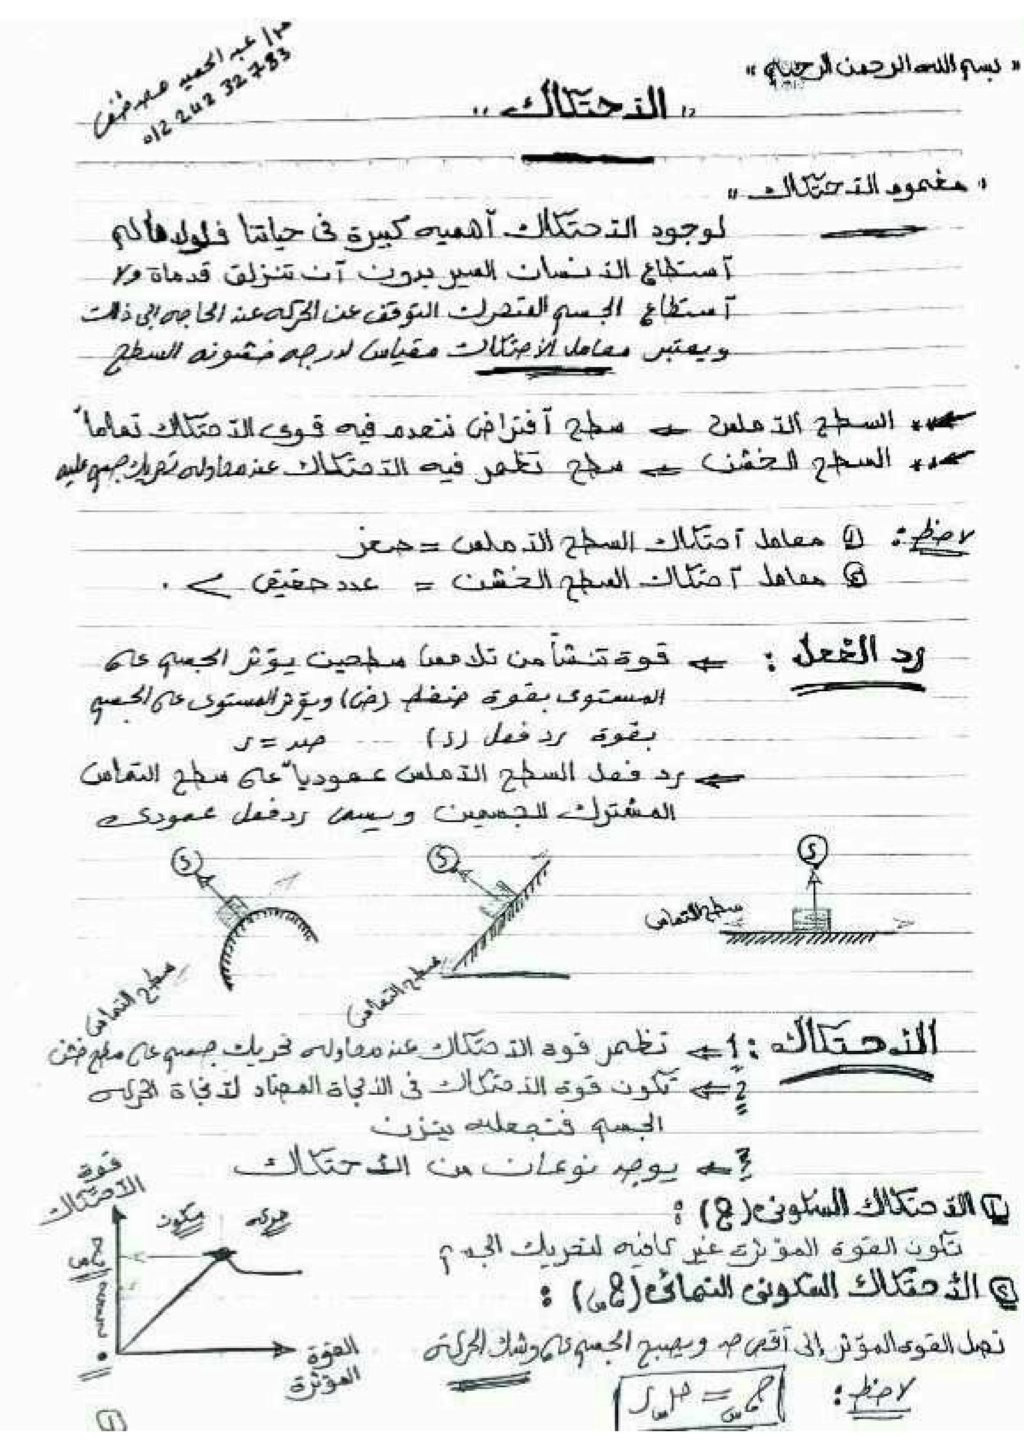 « بسم الله الرحمن الرحيم »
م/ عبدالحميد مصطفى
012 242 32 783
" الاحتكاك "
" مفهوم الاحتكاك "
لوجود الاحتكاك أهميه كبيرة فى حياتنا فلولاه لم
أستطاع الانسان السير بدون أن تنزلق قدماة ولا
أستطاع الجسم المتحرك التوقف عن الحركه عند الحاجه الى ذلك
ويعتبر معامل الأحتكاك مقياس لدرجه خشونه السطح
السطح الاملس ← سطح أفتراض تنعدم فيه قوى الاحتكاك تماماً
السطح الخشن ← سطح تظهر فيه الاحتكاك عند محاوله تحريك جسم عليه
لاحظ : ① معامل أحتكاك السطح الاملس = صفر
② معامل أحتكاك السطح الخشن = عدد حقيقى > ٠
رد الفعل : ← قوة تنشأ من تلامس سطحين يؤثر الجسم على
المستوى بقوة ضغط (ض) ويؤثر المستوى على الجسم
بقوة رد فعل (ر)
← رد فعل السطح الاملس عمودياً على سطح التماس
المشترك للجسمين ويسمى رد فعل عمودى
ر
ر
ر
سطح التماس
سطح التماس
سطح التماس
الاحتكاك : 1 ← تظهر قوة الاحتكاك عند محاوله تحريك جسم على سطح خشن
2 ← تكون قوة الاحتكاك فى الاتجاة المضاد لاتجاة الحركه
الجسم فتجعله يتزن
3 ← يوجد نوعان من الأحتكاك
① الاحتكاك السكونى (ح) :
تكون القوة المؤثرة غير كافيه لتحريك الجسم
② الأحتكاك السكونى النهائى (ح س) :
تصل القوى المؤثر إلى أقصى حد ويصبح الجسم على وشك الحركة
لاحظ : ح س = م س ر
قوة
الأحتكاك
سكون
حركه
ح س
القوة
المؤثرة
①